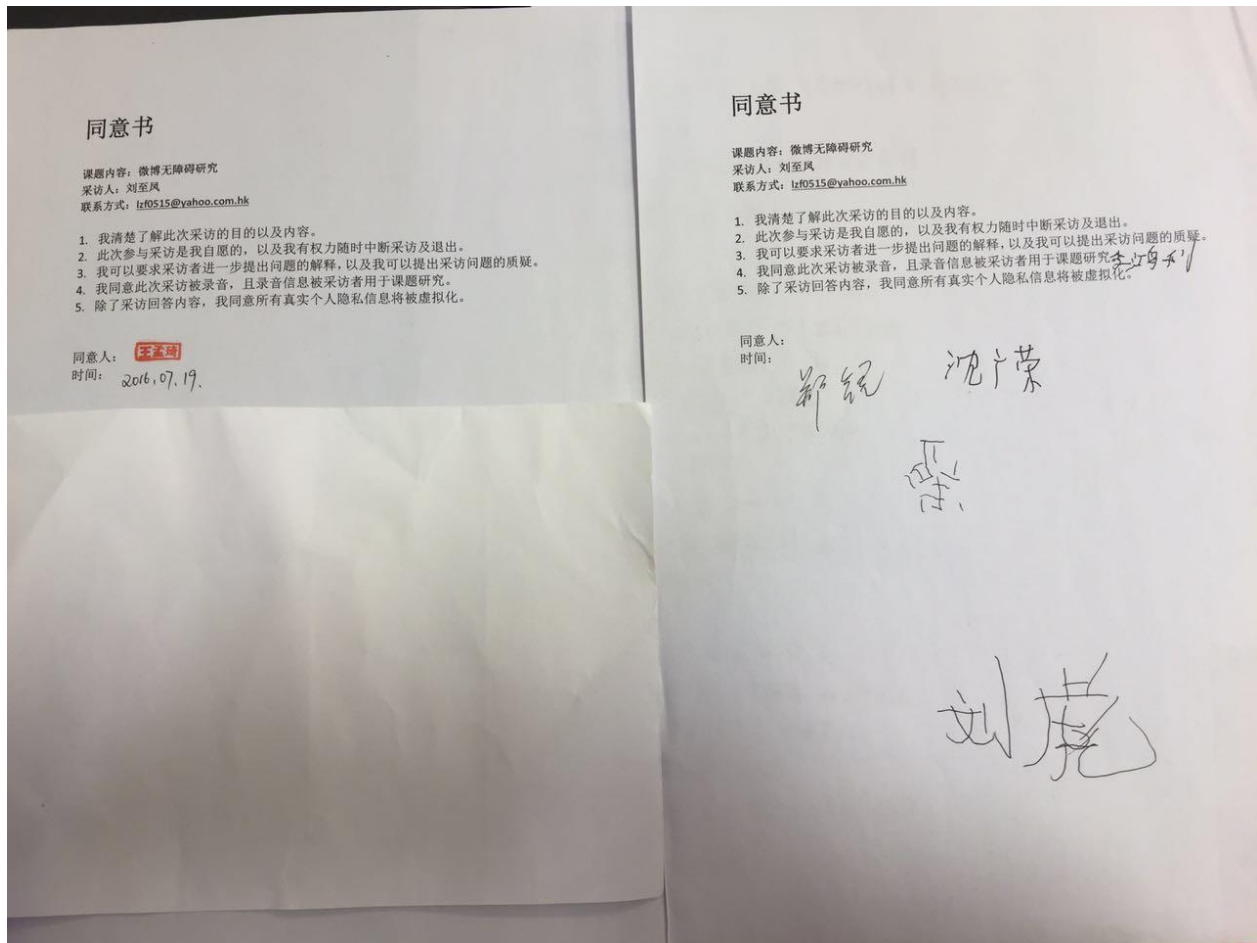 同意书
课题内容：微博无障碍研究
采访人：刘至凤
联系方式：lzf0515@yahoo.com.hk
1. 我清楚了解此次采访的目的以及内容。
2. 此次参与采访是我自愿的，以及我有权力随时中断采访及退出。
3. 我可以要求采访者进一步提出问题的解释，以及我可以提出采访问题的质疑。
4. 我同意此次采访被录音，且录音信息被采访者用于课题研究。
5. 除了采访回答内容，我同意所有真实个人隐私信息将被虚拟化。
同意人：
时间：2016.07.19.
同意书
课题内容：微博无障碍研究
采访人：刘至凤
联系方式：lzf0515@yahoo.com.hk
1. 我清楚了解此次采访的目的以及内容。
2. 此次参与采访是我自愿的，以及我有权力随时中断采访及退出。
3. 我可以要求采访者进一步提出问题的解释，以及我可以提出采访问题的质疑。
4. 我同意此次采访被录音，且录音信息被采访者用于课题研究
5. 除了采访回答内容，我同意所有真实个人隐私信息将被虚拟化。
同意人：
时间：
郑锐 沈广荣
刘彪